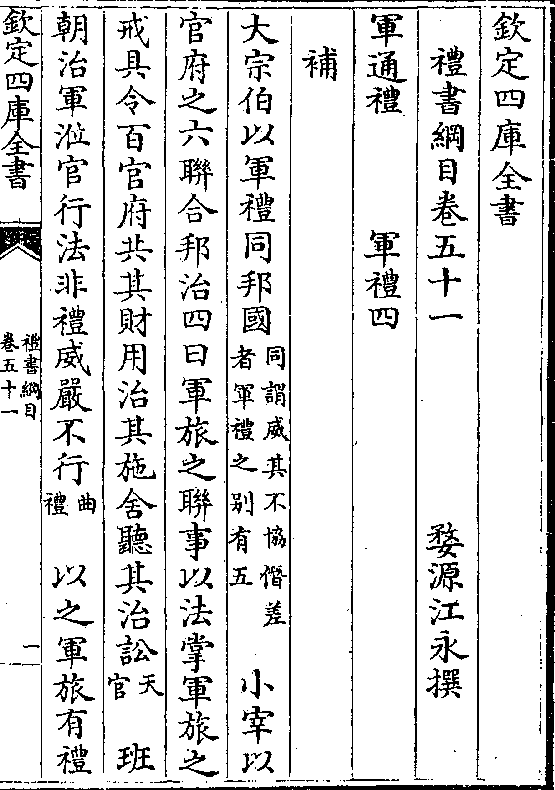 欽定四庫全書
禮書綱目卷五十一　婺源江永撰
軍通禮　軍禮四
補
大宗伯以軍禮同邦國同謂威其不協僭差者軍禮之别有五　小宰以
官府之六聯合邦治四曰軍旅之聯事以法掌軍旅之
戒具令百官府共其財用治其施舍聽其治訟天官　班
朝治軍涖官行法非禮威嚴不行曲禮　以之軍旅有禮
欽定四庫全書
禮書綱目
卷五十一
一